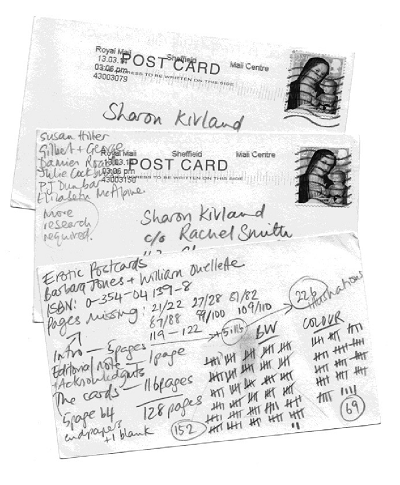 Royal Mail Sheffield Mail Centre
13.03.
POST CARD
03:06 pm
ADDRESS TO BE WRITTEN ON THIS SIDE
43003079
Sharon Kivland
Susan Hiller
Gilbert + George
Damien
Julie Cockburn
PJ Dunbar
Elizabeth McAlpine
more
research
required.
Royal Mail Sheffield Mail Centre
13.03.
POST CARD
03:06 pm
ADDRESS TO BE WRITTEN ON THIS SIDE
43003150
Sharon Kivland
c/o Rachel Smith
Erotic Postcards
Barbara Jones + William Ouellette
ISBN: 0-354-04139-8
Pages missing: 21/22 27/28 81/82
87/88 99/100 109/110
119 - 122
Intro - 5 pages
Editorial note - 1 page
+ Acknowledgments
The cards - 116 pages
128 pages
5 page b4
endpapers
+ 1 blank
152
BW
226
illustrations
COLOUR
69